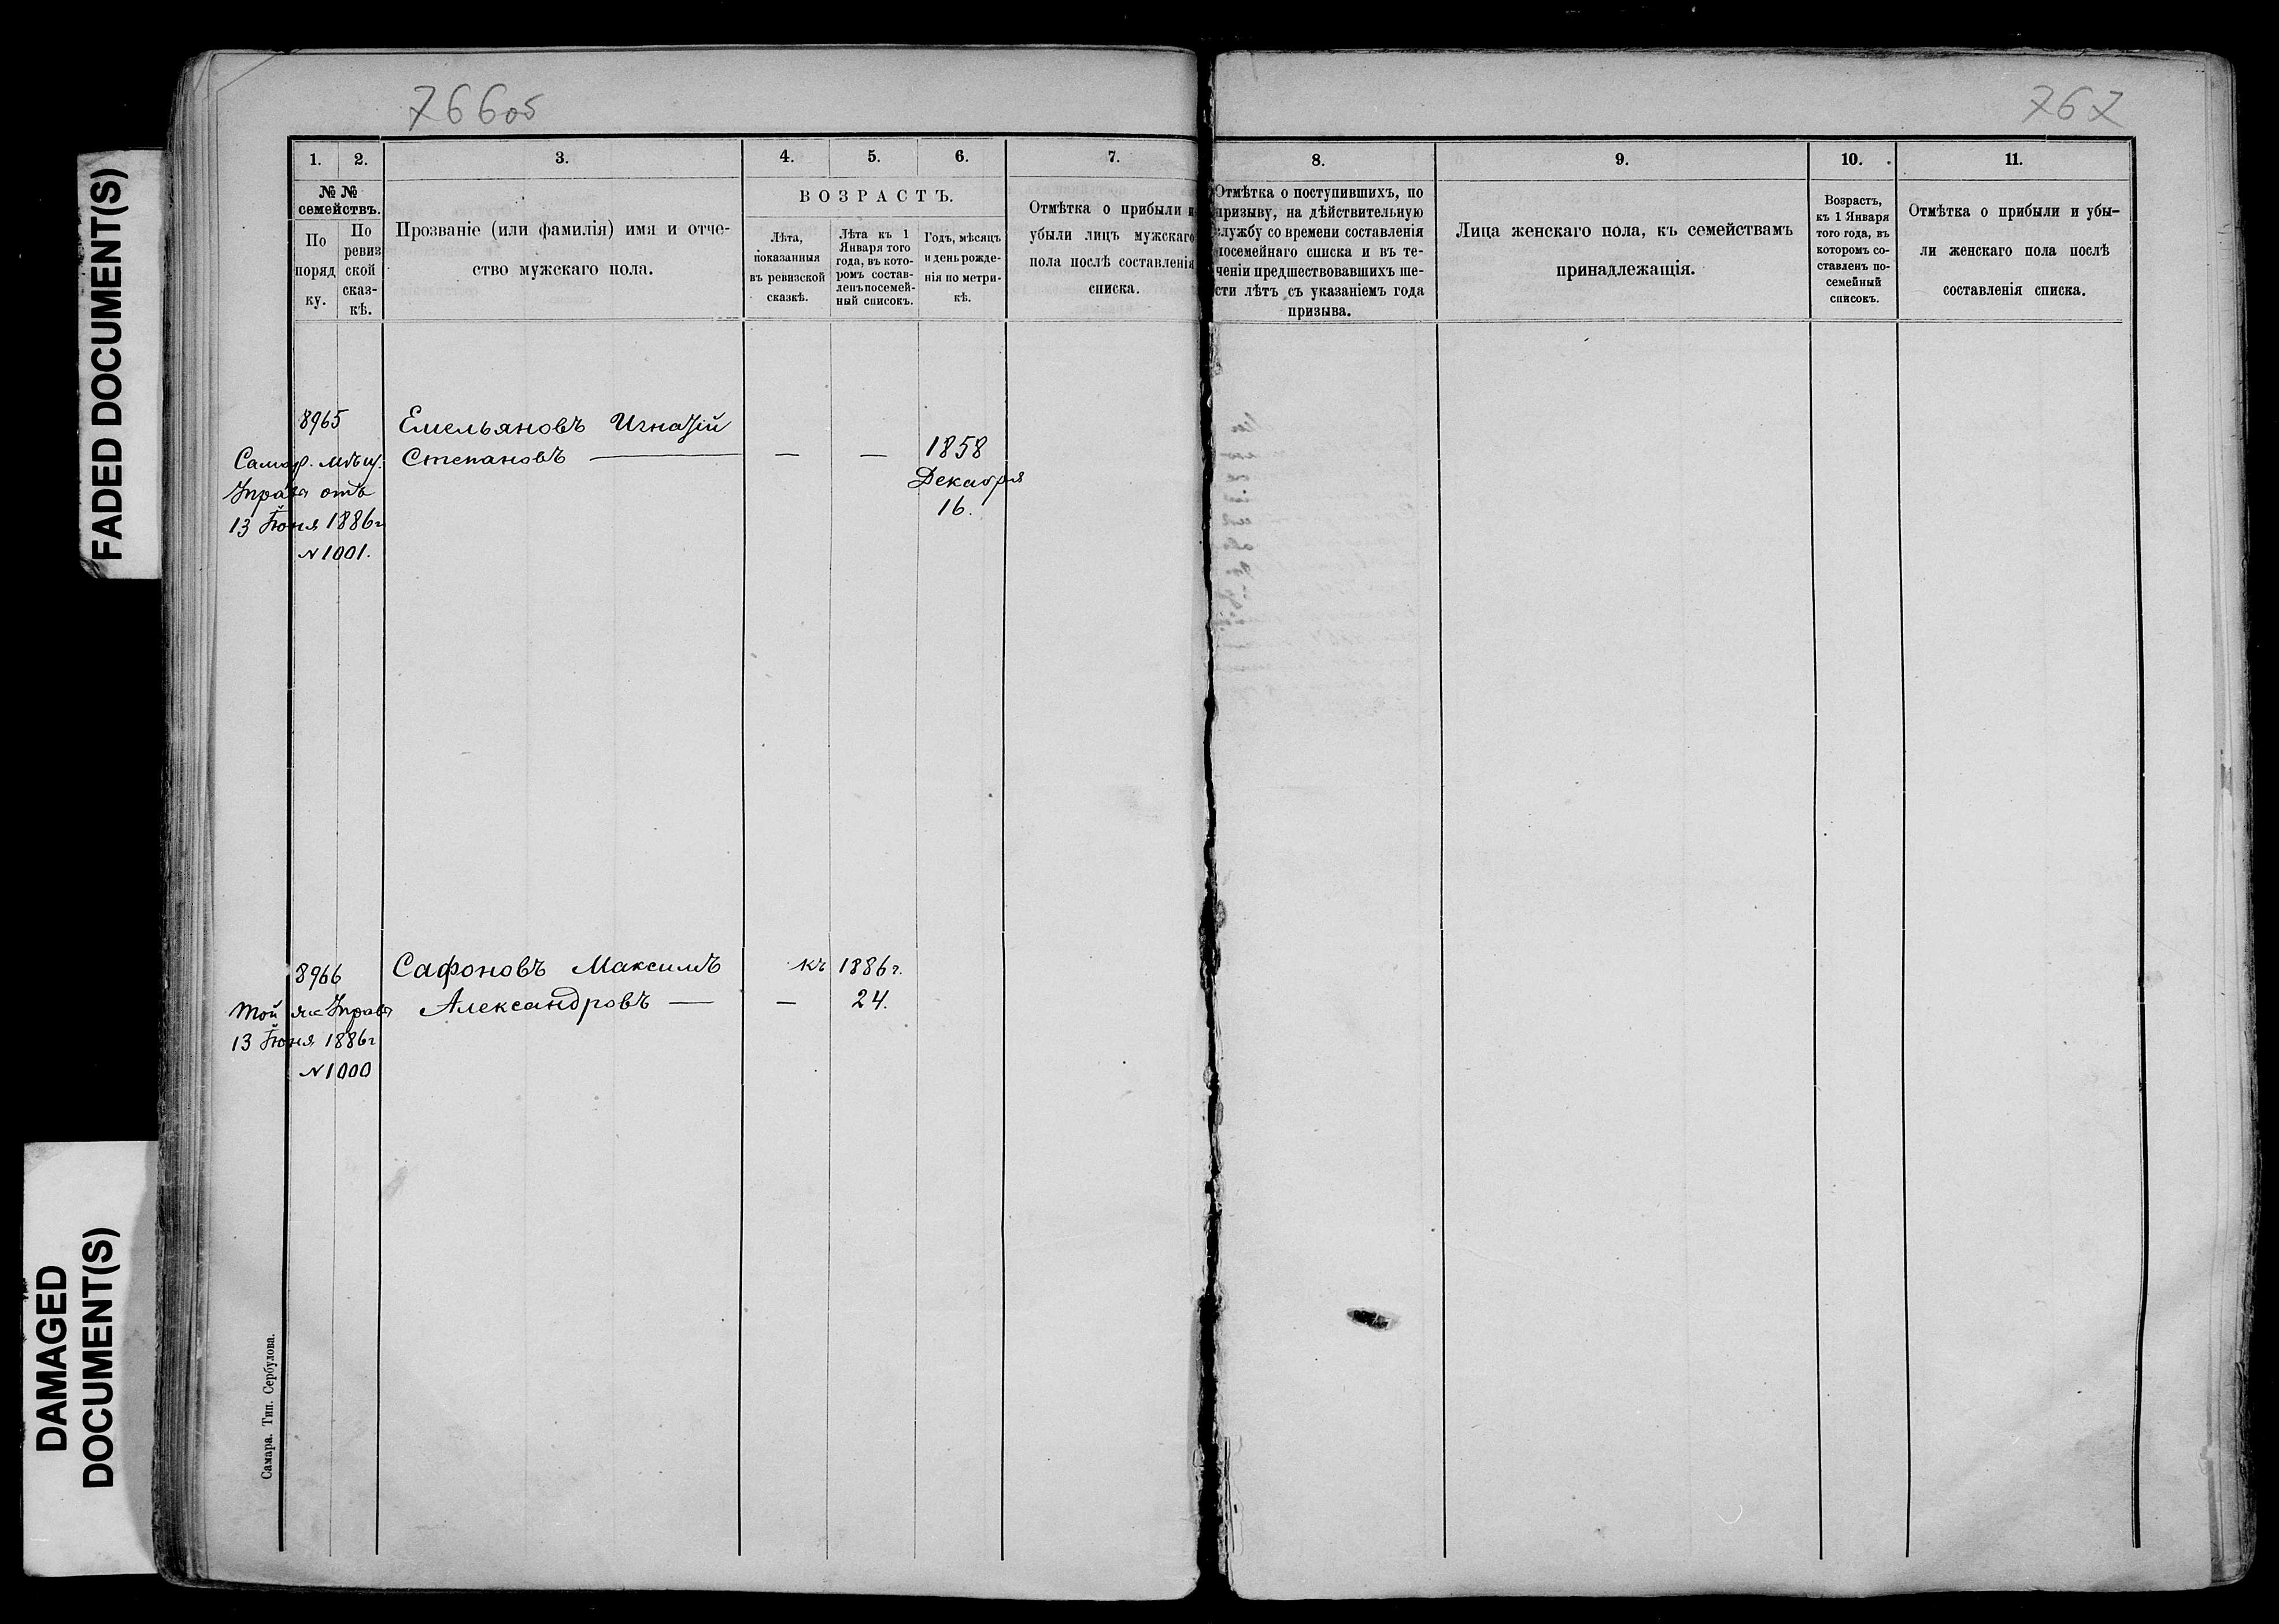 FADED DOCUMENT(S)
DAMAGED
DOCUMENT(S)
766об
767
1.
2.
3.
4.
5.
6.
7.
№ №
семействъ.
По
поряд
ку.
По
ревиз
ской
сказ-
кѣ.
Прозваніе (или фамилія) имя и отче-
ство мужскаго пола.
ВОЗРАСТЪ.
Лѣта,
показанныя
въ ревизской
сказкѣ.
Лѣта къ 1
Января того
года, въ кото-
ромъ состав-
ленъ посемей-
ный списокъ.
Годъ, мѣсяцъ
и день рожде-
нія по метри-
кѣ.
Отмѣтка о прибыли и
убыли лицъ мужскаго
пола послѣ составленія
списка.
8.
9.
10.
11.
Отмѣтка о поступившихъ, по
призыву, на дѣйствительную
службу со времени составленія
посемейнаго списка и въ те-
ченіи предшествовавшихъ ше-
сти лѣтъ съ указаніемъ года
призыва.
Лица женскаго пола, къ семействамъ
принадлежащія.
Возрастъ,
къ 1 Января
того года, въ
которомъ со-
ставленъ по-
семейный
списокъ.
Отмѣтка о прибыли и убы-
ли женскаго пола послѣ
составленія списка.
8965
Самар. мѣщ.
Управа отъ
13 Іюня 1886г
N 1001.
Емельяновъ Игнатій
Степановъ — — —
1858
Декабря
16.
8966
Той же Управы
13 Іюня 1886г
N 1000
Сафоновъ Максимъ
Александровъ — —
къ 1886г.
24.
Самара. Тип. Сербулова.